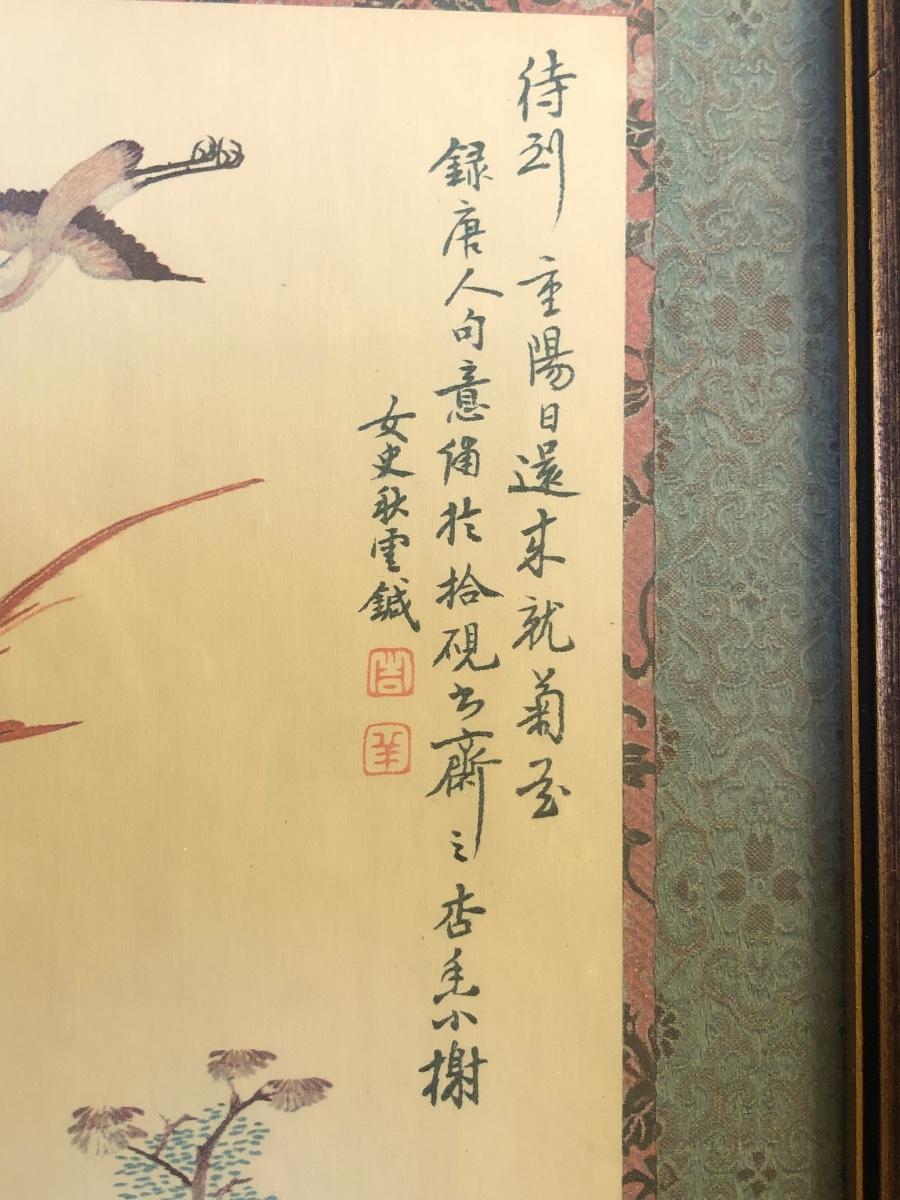 待到重陽日還來就菊花
録唐人句意備於拾硯書齋之杏花小榭
女史秋雲鍼